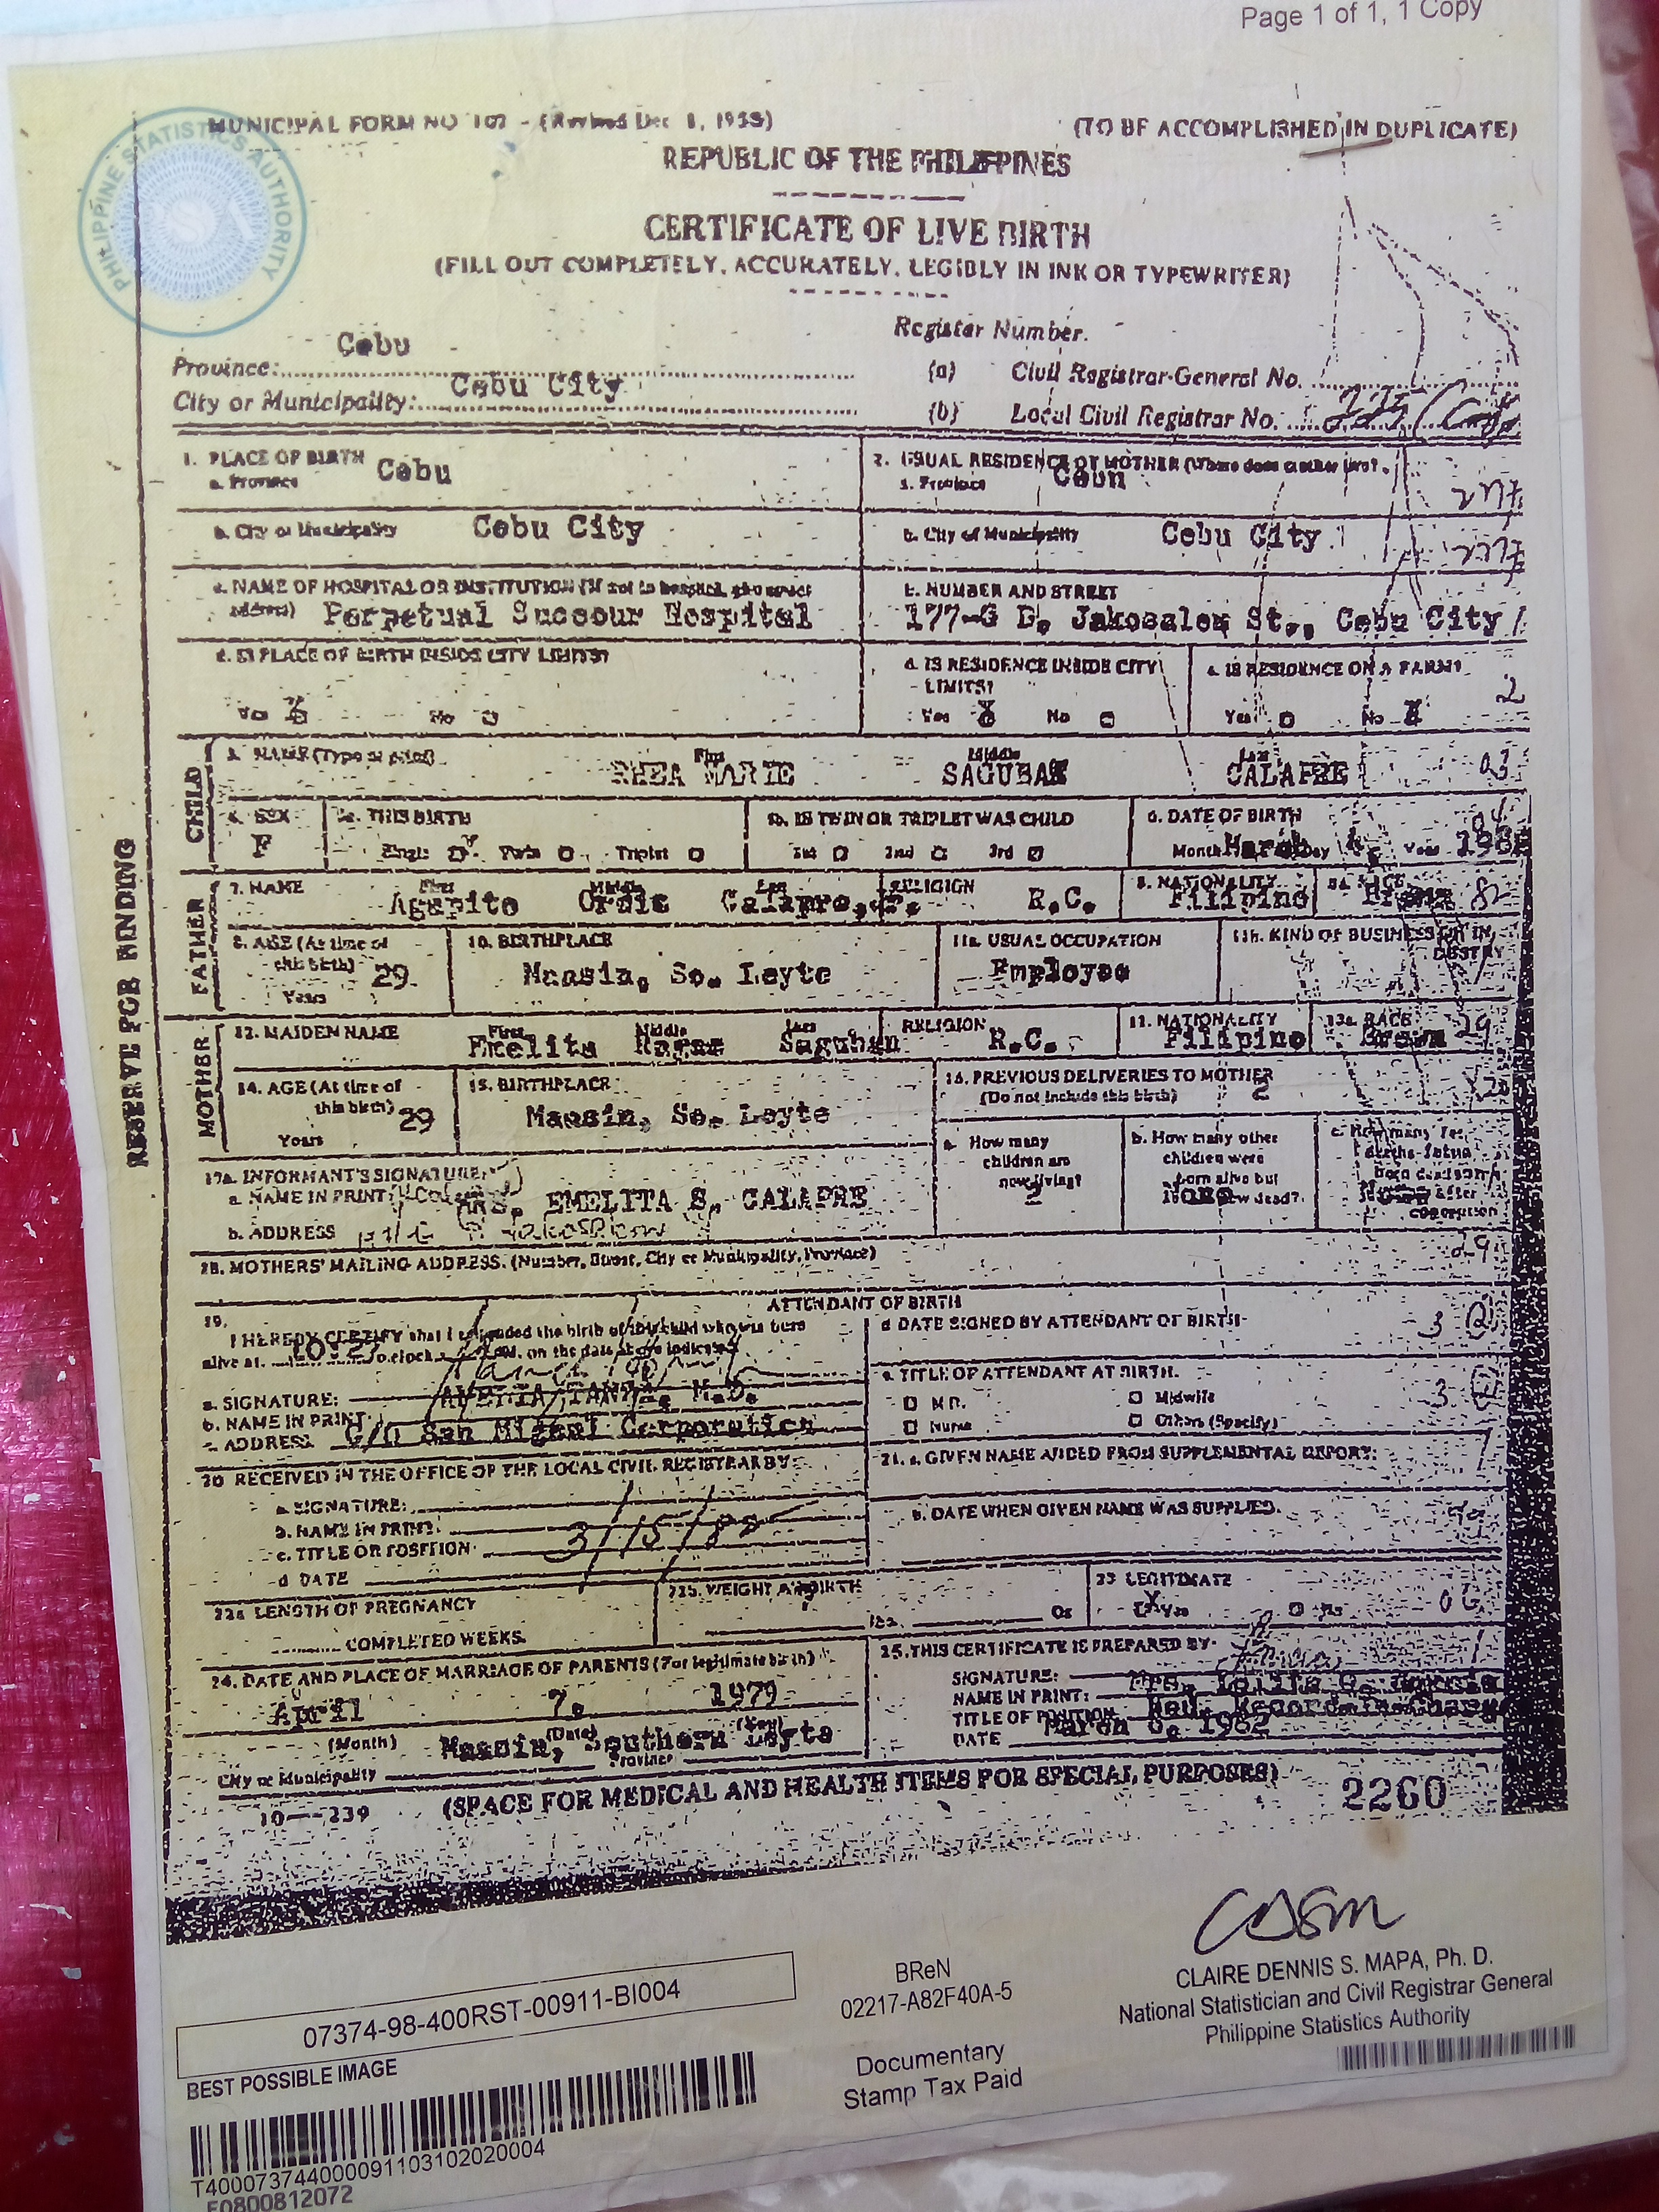 Page 1 of 1, 1 Copy
MUNICIPAL FORM NO 102 - (Revised Dec 1, 1958)
(TO BE ACCOMPLISHED IN DUPLICATE)
PHILIPPINE STATISTICS AUTHORITY
REPUBLIC OF THE PHILIPPINES
CERTIFICATE OF LIVE BIRTH
(FILL OUT COMPLETELY, ACCURATELY, LEGIBLY IN INK OR TYPEWRITER)
Register Number.
Province: Cebu
(a) Civil Registrar-General No.
City or Municipality: Cebu City
(b) Local Civil Registrar No.
1. PLACE OF BIRTH
a. Province Cebu
2. USUAL RESIDENCE OF MOTHER (Where does mother live?
a. Province Cebu
b. City or Municipality Cebu City
b. City of Municipality Cebu City
c. NAME OF HOSPITAL OR INSTITUTION (If not in hospital, give street
address) Perpetual Succour Hospital
c. NUMBER AND STREET
177-G D. Jakosalem St., Cebu City
d. IS PLACE OF BIRTH INSIDE CITY LIMITS?
Yes No
d. IS RESIDENCE INSIDE CITY
LIMITS?
Yes No
e. IS RESIDENCE ON A FARM?
Yes No
2
RESERVE FOR BINDING
CHILD
3. NAME (Type or print)
First Middle Last
RHEA MARIE SAGUBAN CALAPRE
03
4. SEX
F
5a. THIS BIRTH
Single Twin Triplet
5b. IS TWIN OR TRIPLET WAS CHILD
1st 2nd 3rd
6. DATE OF BIRTH
Month March Day Year
04
FATHER
7. NAME First Middle Last
Agapito Ordiz Calapre, Jr.
RELIGION
R.C.
8. NATIONALITY
Filipino
RACE
Brown
82
9. AGE (At time of
this birth) 29
Years
10. BIRTHPLACE
Maasin, So. Leyte
11a. USUAL OCCUPATION
Employee
11b. KIND OF BUSINESS OR IN
DUSTRY
MOTHER
12. MAIDEN NAME First Middle Last
Saguban
RELIGION
R.C.
13. NATIONALITY
Filipino
13a. RACE
Brown
29
14. AGE (At time of
this birth) 29
Years
15. BIRTHPLACE
Maasin, So. Leyte
16. PREVIOUS DELIVERIES TO MOTHER
(Do not include this birth) 2
a. How many
children are
now living?
2
b. How many other
children were
born alive but
now dead?
c. How many
17a. INFORMANT'S SIGNATURE:
a. NAME IN PRINT: MRS. EMELITA S. CALAPRE
b. ADDRESS
18. MOTHERS' MAILING ADDRESS. (Number, Street, City or Municipality, Province)
29
ATTENDANT OF BIRTH
19.
I HEREBY CERTIFY that I attended the birth of this child who was born
alive at 10:27 o'clock M. on the date above indicated
d DATE SIGNED BY ATTENDANT OF BIRTH
3 2
a. SIGNATURE:
b. NAME IN PRINT: M.D.
c. ADDRESS C/O San Miguel Corporation
e. TITLE OF ATTENDANT AT BIRTH.
M D. Midwife
Nurse Others (Specify)
3
20 RECEIVED IN THE OFFICE OF THE LOCAL CIVIL REGISTRAR BY:
a. SIGNATURE:
b. NAME IN PRINT:
c. TITLE OR POSITION
3/15/82
d DATE
21. a. GIVEN NAME ADDED FROM SUPPLEMENTAL REPORT:
b. DATE WHEN GIVEN NAME WAS SUPPLIED.
22a LENGTH OF PREGNANCY
COMPLETED WEEKS.
22b. WEIGHT AT BIRTH
lbs. Oz
23 LEGITIMATE
Yes No
24. DATE AND PLACE OF MARRIAGE OF PARENTS (For legitimate birth)
April 7, 1979
(Month) (Date) (Year)
Maasin, Southern Leyte
City or Municipality Province
25. THIS CERTIFICATE IS PREPARED BY
SIGNATURE:
NAME IN PRINT:
TITLE OF POSITION
DATE March 6, 1982
10—239
(SPACE FOR MEDICAL AND HEALTH ITEMS FOR SPECIAL PURPOSES)
2260
07374-98-400RST-00911-BI004
BEST POSSIBLE IMAGE
T400073744000091103102020004
F0800812072
BReN
02217-A82F40A-5
Documentary
Stamp Tax Paid
CLAIRE DENNIS S. MAPA, Ph. D.
National Statistician and Civil Registrar General
Philippine Statistics Authority